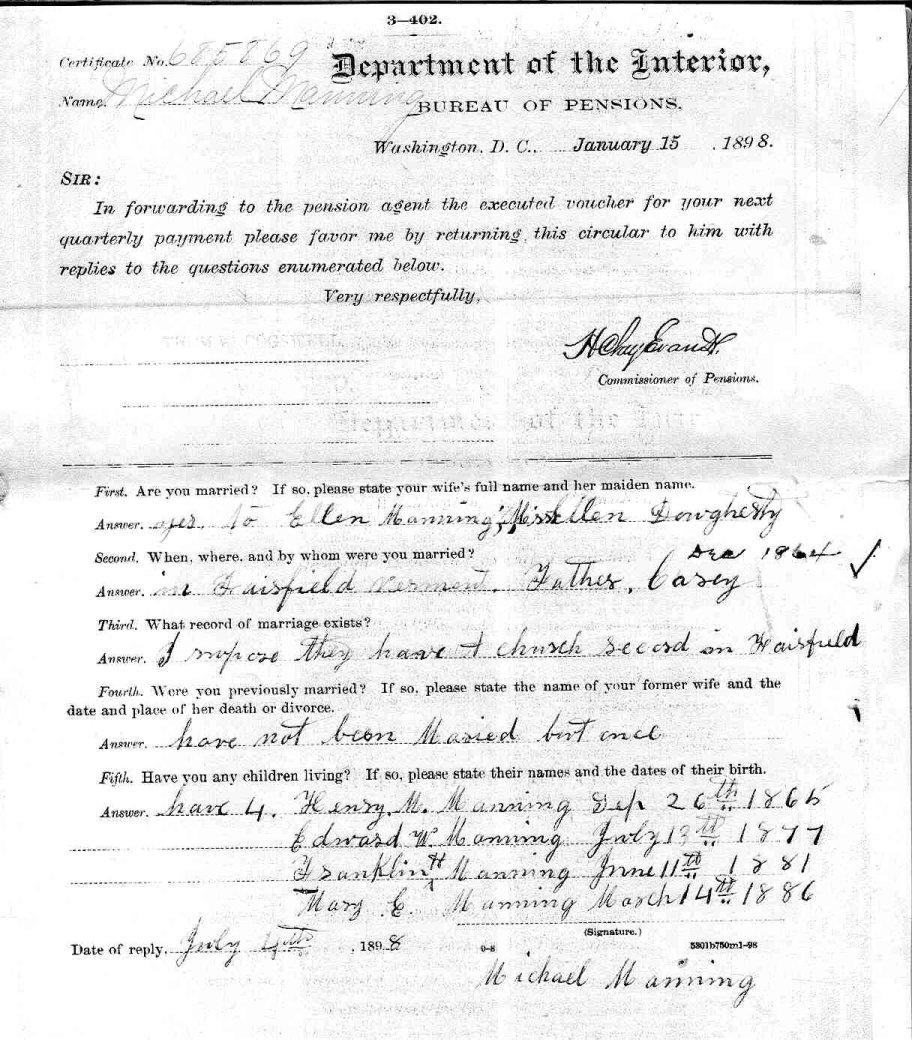 3—402.
Certificate No. 685869
Department of the Interior,
Name, Michael Manning
BUREAU OF PENSIONS.
Washington, D. C., January 15, 1898.
SIR:
In forwarding to the pension agent the executed voucher for your next
quarterly payment please favor me by returning this circular to him with
replies to the questions enumerated below.
Very respectfully,
H Clay Evans
Commissioner of Pensions.
First. Are you married? If so, please state your wife's full name and her maiden name.
Answer. yes. to Ellen Manning, Miss Ellen Dowgherty
Second. When, where, and by whom were you married? Dec 1864
Answer. in Fairfield Vermont. Father, Casey
Third. What record of marriage exists?
Answer. I supose they have A church record in Fairfield
Fourth. Were you previously married? If so, please state the name of your former wife and the
date and place of her death or divorce.
Answer. have not been Maried but once
Fifth. Have you any children living? If so, please state their names and the dates of their birth.
Answer. have 4. Henry. M. Manning Sep 26th 1865
Edward W. Manning July 13th 1877
Franklin H Manning June 11th 1881
Mary E Manning March 14th 1886
(Signature.)
Date of reply, July, 1898
9-8 5301b750m1-98
Michael Manning